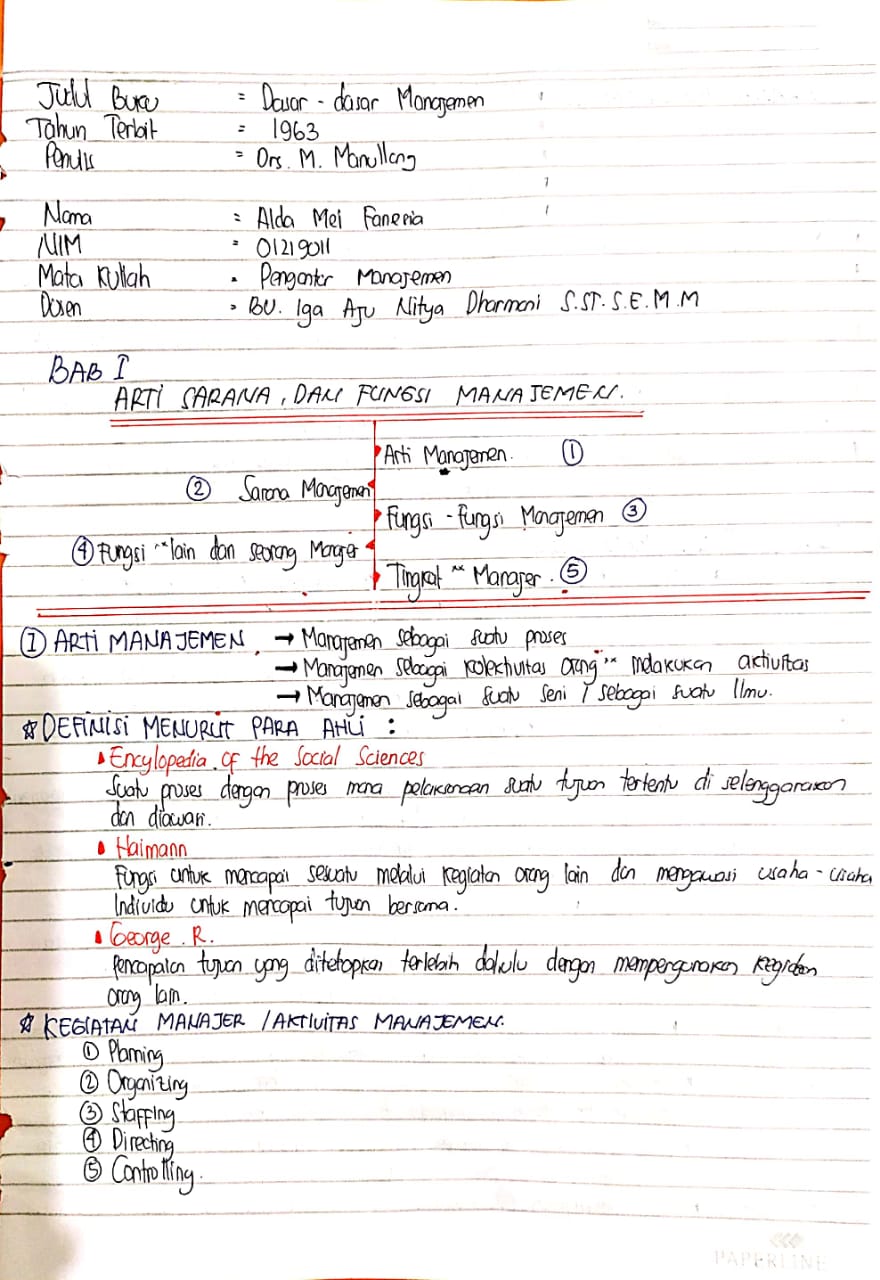 Judul Buku = Dasar - dasar Manajemen
Tahun Terbit = 1963
Penulis = Drs. M. Manullang
Nama = Alda Mei Faneria
NIM = 01219011
Mata Kuliah = Pengantar Manajemen
Dosen = BU. Iga Aju Nitya Dharmani S.ST.S.E.M.M
BAB I
ARTI SARANA, DAN FUNGSI MANAJEMEN.
Arti Manajemen. ①
② Sarana Manajemen
Fungsi - fungsi Manajemen ③
④ Fungsi "lain dan seorang Manajer
Tingkat " Manajer. ⑤
① ARTI MANAJEMEN. → Manajemen sebagai suatu proses
→ Manajemen sebagai kolektivitas orang" melakukan aktivitas
→ Manajemen sebagai suatu seni / sebagai suatu Ilmu.
☆ DEFINISI MENURUT PARA AHLI :
Encylopedia of the Social Sciences
Suatu proses dengan proses mana pelaksanaan suatu tujuan tertentu di selenggarakan
dan diawasi.
Haimann
Fungsi untuk mencapai sesuatu melalui kegiatan orang lain dan mengawasi usaha - usaha
Individu untuk mencapai tujuan bersama.
George. R.
Pencapaian tujuan yang ditetapkan terlebih dahulu dengan mempergunakan kegiatan
orang lain.
☆ KEGIATAN MANAJER / AKTIVITAS MANAJEMEN.
① Planning
② Organizing
③ Staffing
④ Directing
⑤ Controlling.
PAPERLINE